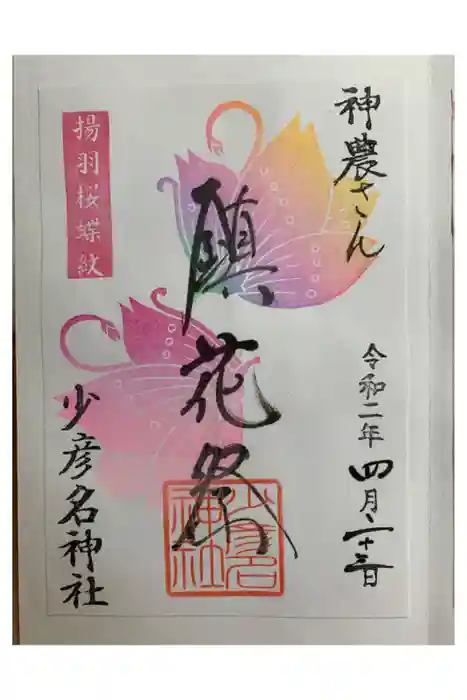 神農さん
令和二年 四月二十三日
鎮花祭
揚羽桜蝶紋
少彦名神社
少彦名
神社